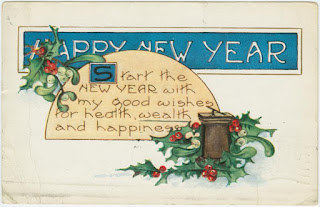 HAPPY NEW YEAR
Start the
NEW YEAR with
my good wishes
for health, wealth
and happiness